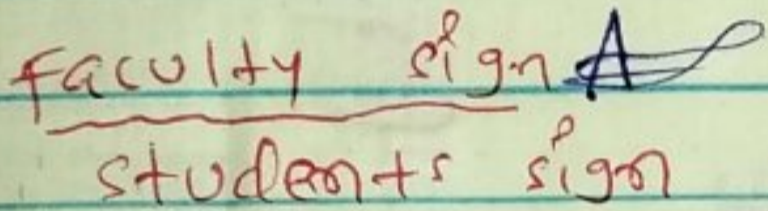 Faculty sign
students sign